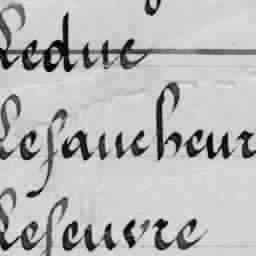 Leduc
Lefaucheur
Lefeuvre